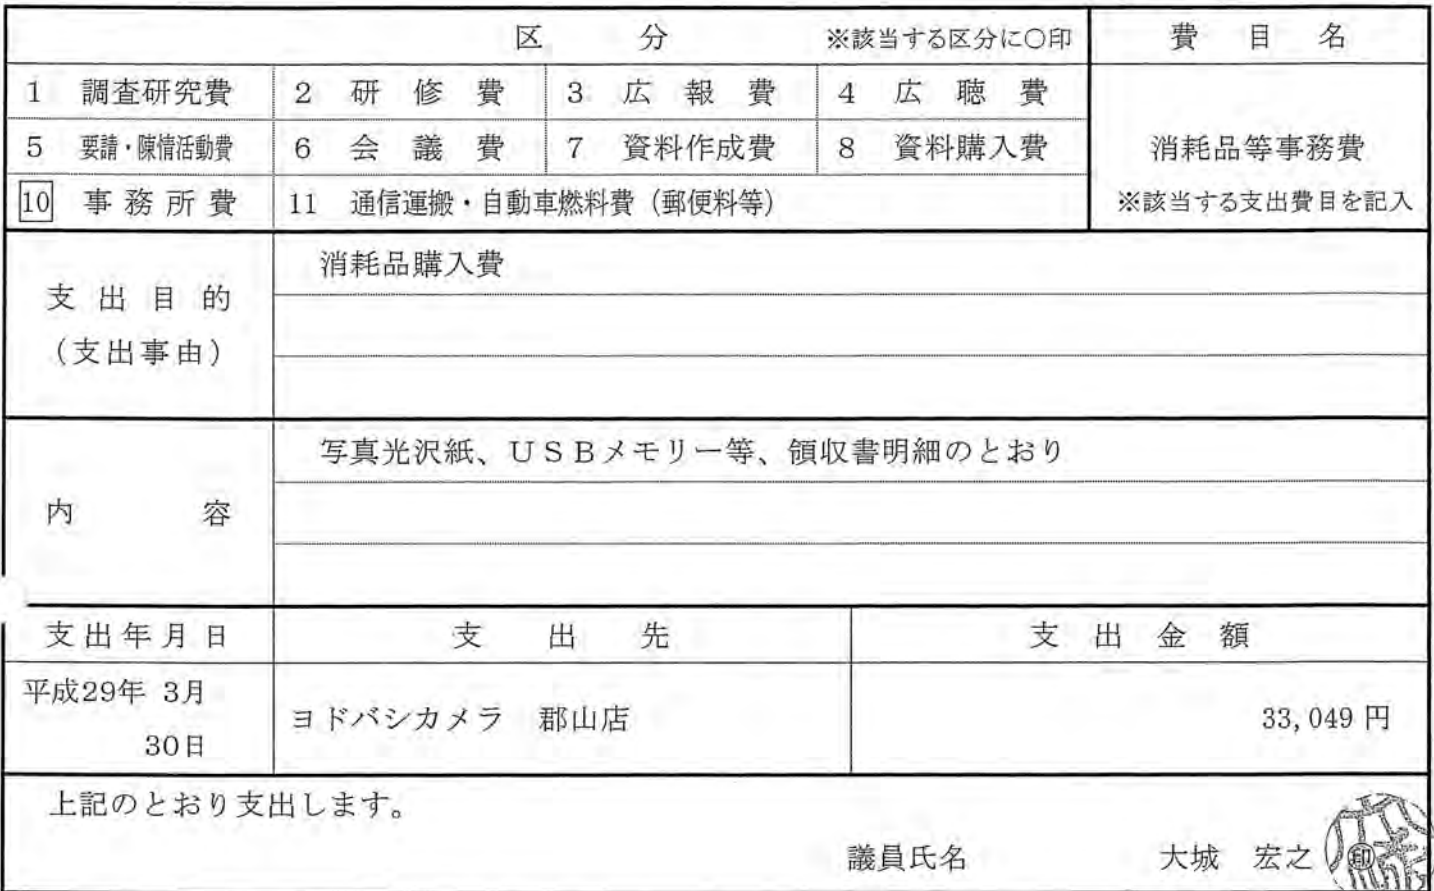 区 分 ※該当する区分に○印 費 目 名
1 調査研究費 2 研 修 費 3 広 報 費 4 広 聴 費
5 要請・陳情活動費 6 会 議 費 7 資料作成費 8 資料購入費 消耗品等事務費
10 事務所費 11 通信運搬・自動車燃料費（郵便料等） ※該当する支出費目を記入
消耗品購入費
支出目的
（支出事由）
写真光沢紙、ＵＳＢメモリー等、領収書明細のとおり
内 容
支出年月日 支 出 先 支 出 金 額
平成29年 3月
ヨドバシカメラ 郡山店 33,049 円
30日
上記のとおり支出します。
議員氏名 大城 宏之 ㊞